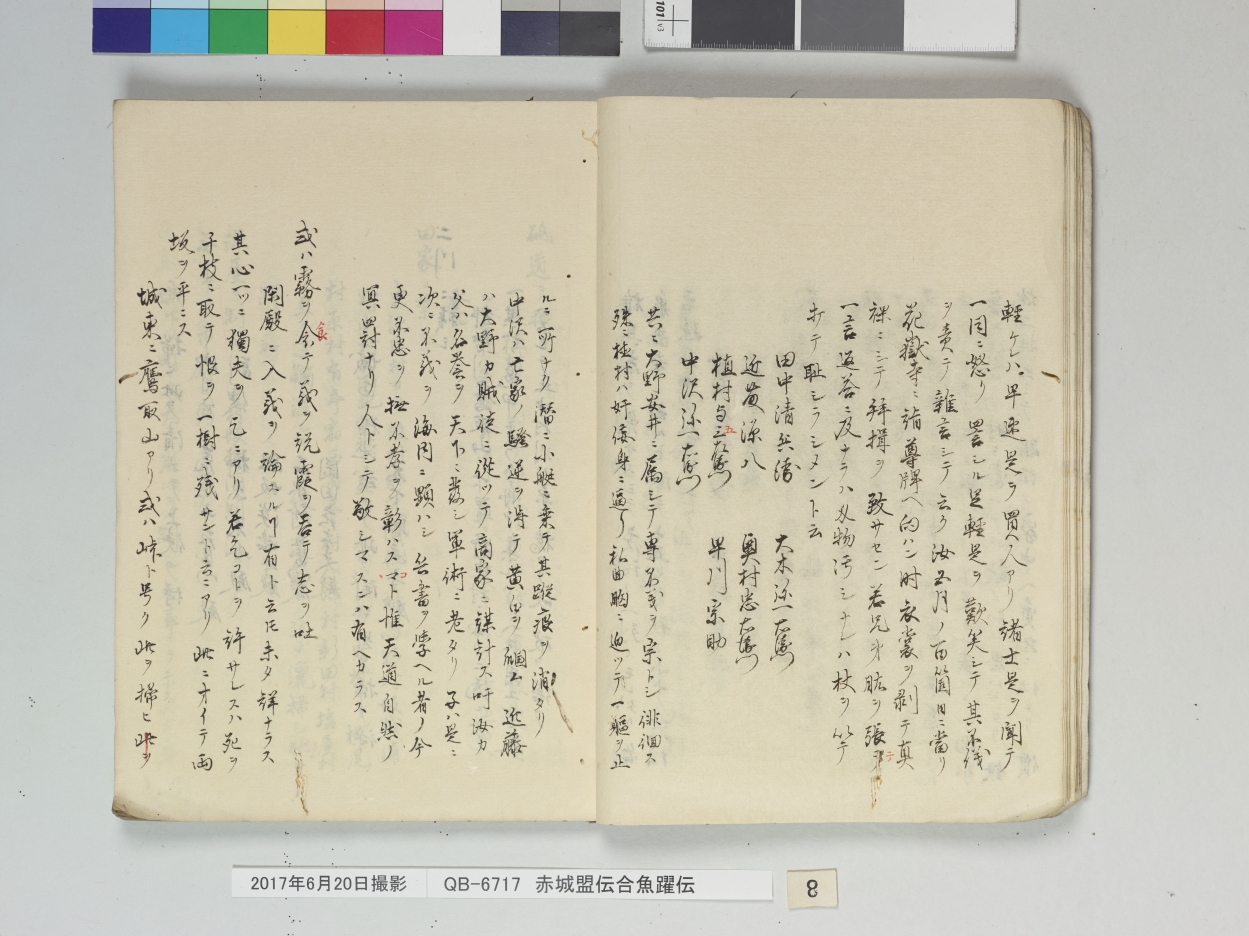 軽ケレハ早速是ヲ買ヘ人アリ諸士是ヲ聞テ
一同ニ怒リ詈シル足軽是ヲ歎笑シテ其不儀
ヲ責テ雑言シテ云ク汝五月ノ百箇日ニ當リ
花嶽寺ニ詣尊牌ヘ向ハン時衣裳ヲ剥テ真
裸ニシテ拜揖ヲ致サセン若兄弟肱ヲ張テ
一言返答ニ及ナラハ刄物汚シナレハ杖ヲ以テ
打テ耻シラシメント云
田中清兵衛 大木弥一右衛門
近藤源八 奥村忠右衛門
植村与五左衛門 早川宗助
中沢弥一右衛門
共ニ大野安井ニ属シテ専不義ヲ宗トシ徘徊ス
殊ニ植村ハ奸侫身ニ逼リ私曲胸ニ迫ツテ一軀ヲ止
ルニ所ナク潜ニ小艇ニ乗テ其蹤痕ヲ消タリ
中沢ハ亡家ノ騒逆ヲ得テ黄白ヲ稇ム近藤
ハ大野カ賊徒ニ從ツテ商家ニ謀計ス吁汝カ
父ハ名誉ヲ天下ニ發シ軍術ニ老タリ子ハ是ニ
次ニ不義ヲ海内ニ顕ハシ兵書ヲ学ヘル者ノ今
更不忠ヲ 不孝ヲ彰ハスコト惟天道自然ノ
冥罸ナリ人トシテ敬シマスンハ有ヘカラス
或ハ霧ヲ食テ義ヲ説霞ヲ呑テ志ヲ吐
閑殿ニ入義ヲ論スル有ト云トモ未タ詳ナラス
其心一ツニ獨夫ヲ乞ニアリ若乞コトヲ許サレスハ死ヲ
干枝ニ取テ恨ヲ一樹ニ残サントニアリ此ニオイテ両
坂ヲ平ニス
城東ニ鷹取山アリ或ハ峠ト号ク此ヲ掃ヒ此ヲ
101 v3
2017年6月20日撮影 QB-6717 赤城盟伝合魚躍伝
8